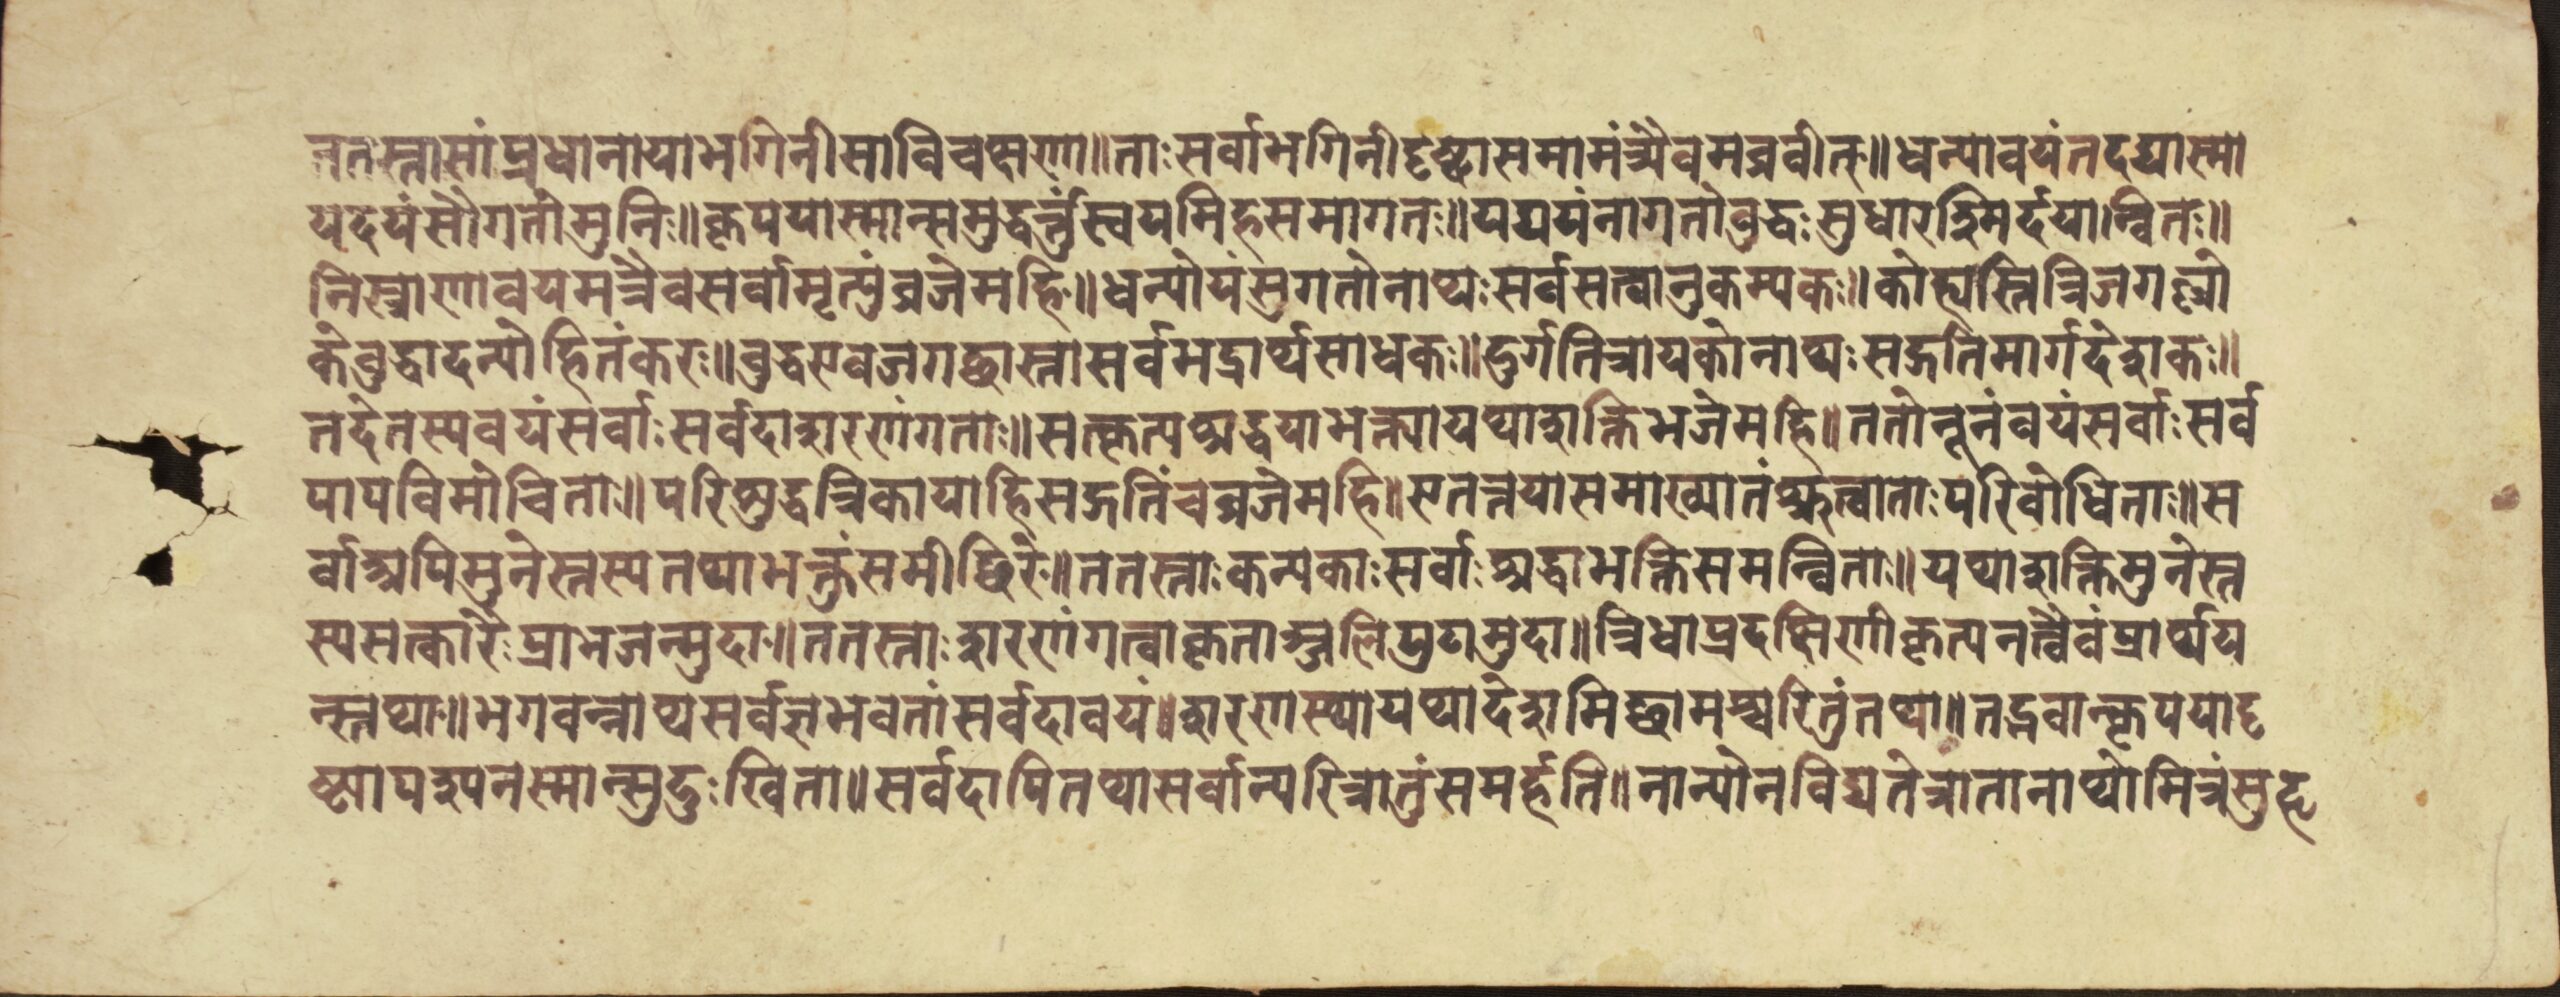 ततस्तासांप्रधानायाभगिनीसाविचक्षणा॥ताःसर्वाभगिनीदृष्ट्वासमामंत्र्यैवमव्रवीत्॥धन्यावयंतदद्यास्मो
यदयंसौगतोमुनिः॥कृपयास्मान्समुद्धर्त्तुंस्वयमिहसमागतः॥यद्ययंनागतोवुद्धःसुधारश्मिर्दयान्वितः॥
निस्त्राणावयमत्रैवसर्वामृत्युंव्रजेमहि॥धन्योयंसुगतोनाथःसर्वसत्वानुकम्पकः॥कोह्यस्तित्रिजगल्लो
केवुद्धादन्योहितंकरः॥वुद्धएवजगच्छास्तासर्वभद्रार्थसाधकः॥दुर्गतित्रायकोनाथःसद्गतिमार्गदेशकः॥
तदेतस्यवयंसर्वाःसर्वदाशरणंगताः॥सत्कृत्यश्रद्धयाभक्त्यायथाशक्तिभजेमहि॥ततोनूनंवयंसर्वाःसर्व
पापविमोचिताः॥परिशुद्धत्रिकायाहिसद्गतिंचव्रजेमहि॥एतत्तयासमाख्यातंश्रुत्वाताःपरिवोधिताः॥स
र्वाश्चपिमुनेस्तस्यतथाभक्तुंसमीछिरे॥ततस्ताःकन्यकाःसर्वाःश्रद्धाभक्तिसमन्विताः॥यथाशक्तिमुनेस्त
स्यसत्कारैःप्राभजन्मुदाः॥ततस्ताःशरणंगत्वाकृताञ्जलिपुटामुदा॥त्रिधाप्रदक्षिणीकृत्यनत्वैवंप्रार्थय
न्स्तथा॥भगवन्नाथसर्वज्ञभवतांसर्वदावयं॥शरणस्थायथादेशमिच्छामश्चरितुंतथा॥तद्भवान्कृपयादृ
ष्ट्यापश्यनस्मान्सुदुःखिता॥सर्वदापितथासर्वान्परित्रातुंसमर्हति॥नान्योनविद्यतेत्रातानाथोमित्रंसुहृ